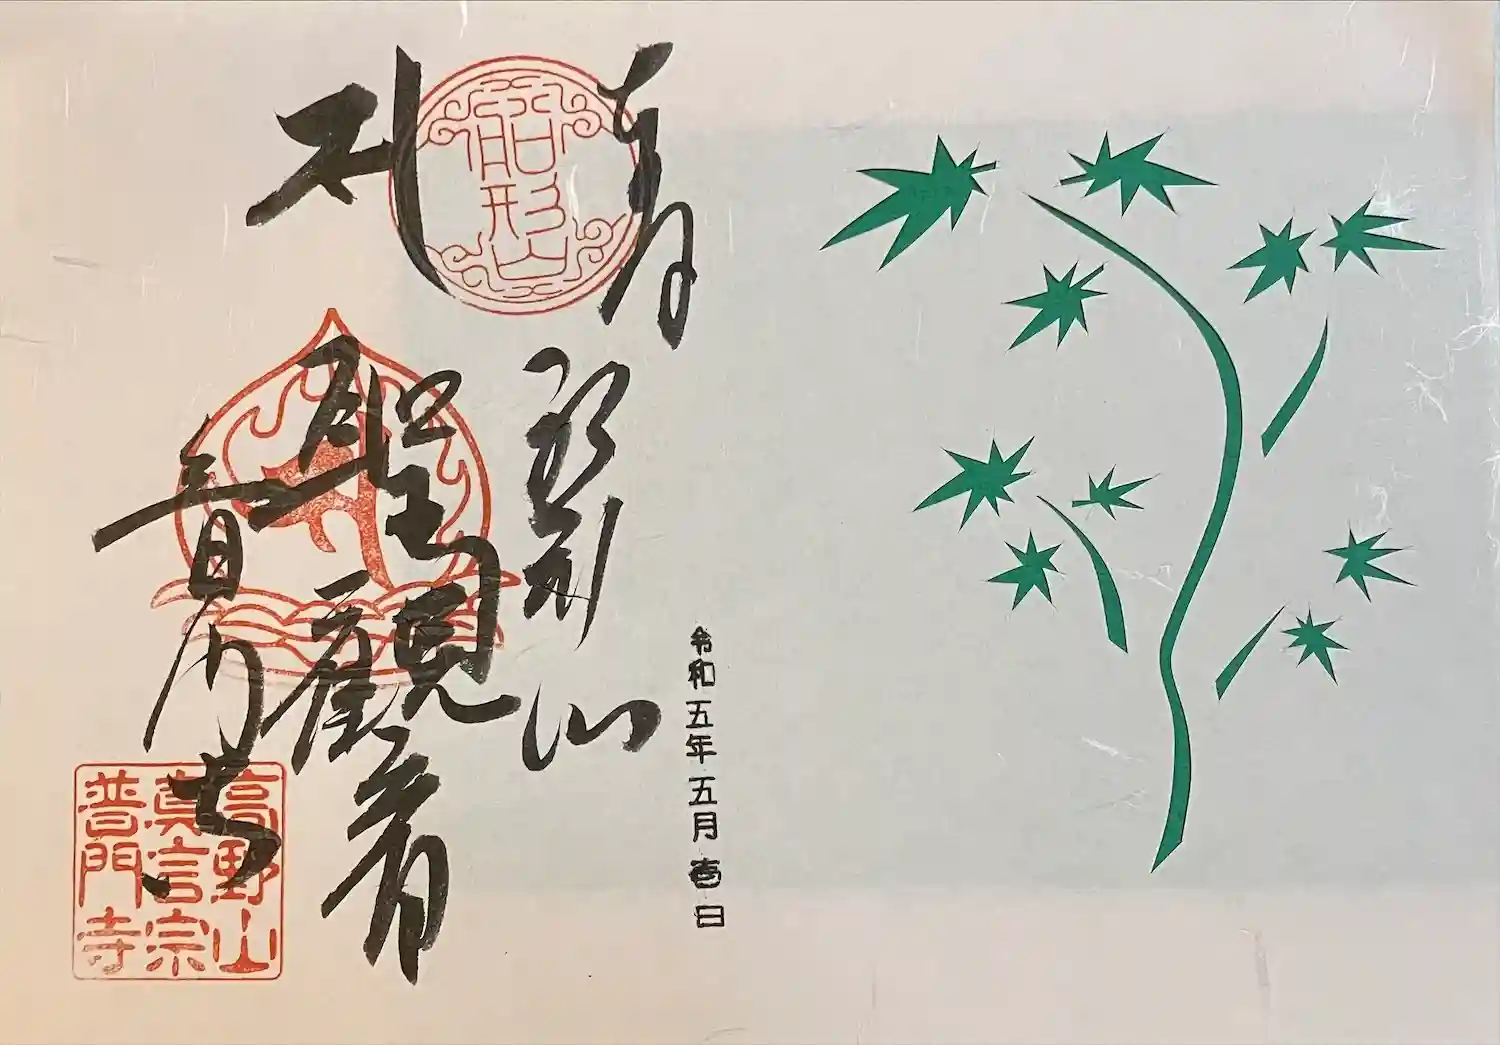 船形山
船形山
令和五年五月壱日
聖觀音
普門寺
高野山
眞言宗
普門寺